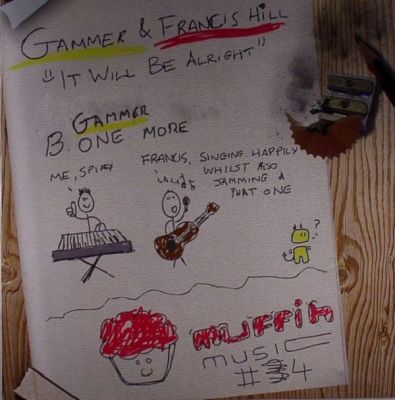 GAMMER & FRANCIS HILL
"IT WILL BE ALRIGHT"
GAMMER
B. ONE MORE
ME, SPIKEY
FRANCIS, SINGING HAPPILY
WHILST ALSO
JAMMING A
PHAT ONE
LALALA
?
muffin
MUSIC
#4